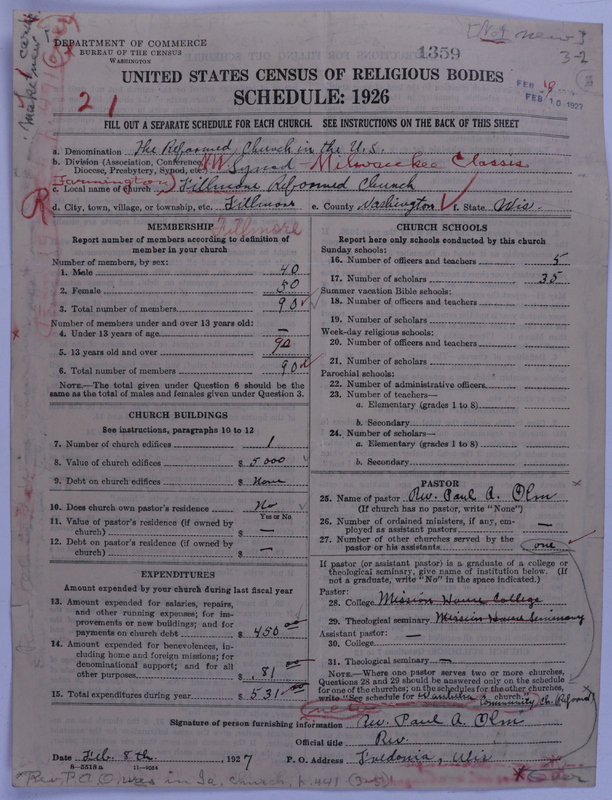 [Not new]
3-2
make new card
DEPARTMENT OF COMMERCE
BUREAU OF THE CENSUS
WASHINGTON
1359
UNITED STATES CENSUS OF RELIGIOUS BODIES
SCHEDULE: 1926
FEB 10 1927
2 1
FILL OUT A SEPARATE SCHEDULE FOR EACH CHURCH. SEE INSTRUCTIONS ON THE BACK OF THIS SHEET
a. Denomination The Reformed Church in the U.S.
b. Division (Association, Conference, Diocese, Presbytery, Synod, etc.) N.W. Synod - Milwaukee Classis
Farmington
c. Local name of church Fillmore Reformed Church
d. City, town, village, or township, etc. Fillmore e. County Washington f. State Wis.
MEMBERSHIP Fillmore
Report number of members according to definition of
member in your church
Number of members, by sex:
1. Male 40
2. Female 50
3. Total number of members 90
Number of members under and over 13 years old:
4. Under 13 years of age —
5. 13 years old and over 90
6. Total number of members 90
NOTE.—The total given under Question 6 should be the
same as the total of males and females given under Question 3.
CHURCH BUILDINGS
See instructions, paragraphs 10 to 12
7. Number of church edifices 1
8. Value of church edifices $ 5000
9. Debt on church edifices $ None
10. Does church own pastor's residence No
Yes or No
11. Value of pastor's residence (if owned by
church) $ —
12. Debt on pastor's residence (if owned by
church) $ —
EXPENDITURES
Amount expended by your church during last fiscal year
13. Amount expended for salaries, repairs,
and other running expenses; for im-
provements or new buildings; and for
payments on church debt $ 450.00
14. Amount expended for benevolences, in-
cluding home and foreign missions; for
denominational support; and for all
other purposes $ 81.00
15. Total expenditures during year $ 531.00
CHURCH SCHOOLS
Report here only schools conducted by this church
Sunday schools:
16. Number of officers and teachers 5
17. Number of scholars 35
Summer vacation Bible schools:
18. Number of officers and teachers
19. Number of scholars
Week-day religious schools:
20. Number of officers and teachers
21. Number of scholars
Parochial schools:
22. Number of administrative officers
23. Number of teachers—
a. Elementary (grades 1 to 8)
b. Secondary
24. Number of scholars—
a. Elementary (grades 1 to 8)
b. Secondary
PASTOR
25. Name of pastor Rev. Paul A. Olm
(If church has no pastor, write "None")
26. Number of ordained ministers, if any, em-
ployed as assistant pastors —
27. Number of other churches served by the
pastor or his assistants one
If pastor (or assistant pastor) is a graduate of a college or
theological seminary, give name of institution below. (If
not a graduate, write "No" in the space indicated.)
Pastor:
28. College Mission House College
29. Theological seminary Mission House Seminary
Assistant pastor: —
30. College
31. Theological seminary —
NOTE.—Where one pastor serves two or more churches,
Questions 28 and 29 should be answered only on the schedule
for one of the churches; on the schedules for the other churches,
write "See schedule for church."
Community Ch. Reformed
Signature of person furnishing information Rev. Paul A. Olm
Official title Rev.
Date Feb. 8th, 1927 P. O. Address Fredonia, Wis
8—5518a 11—9084
Rev. P. A. O. was in Ia. church, p. 441 (3-5)
Over